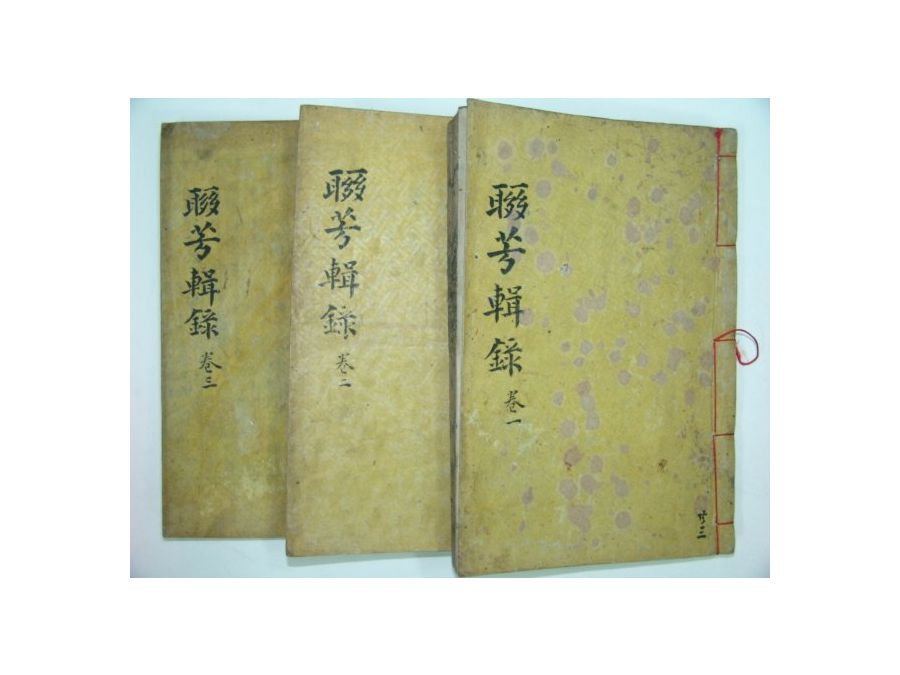 聯芳輯錄 卷一
共三
聯芳輯錄 卷二
聯芳輯錄 卷三